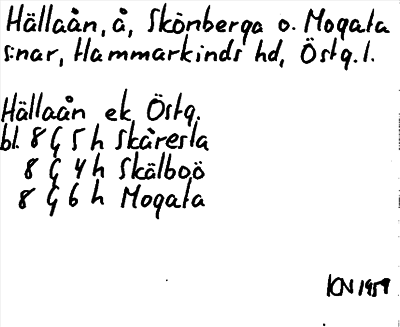 Hällaån, å, Skönberga o. Mogata
s:nar, Hammarkinds hd, Östg. l.
Hällaån ek Östg.
bl. 8 G 5 h Skåresta
8 G 4 h Skälboö
8 G 6 h Mogata
KN 1959